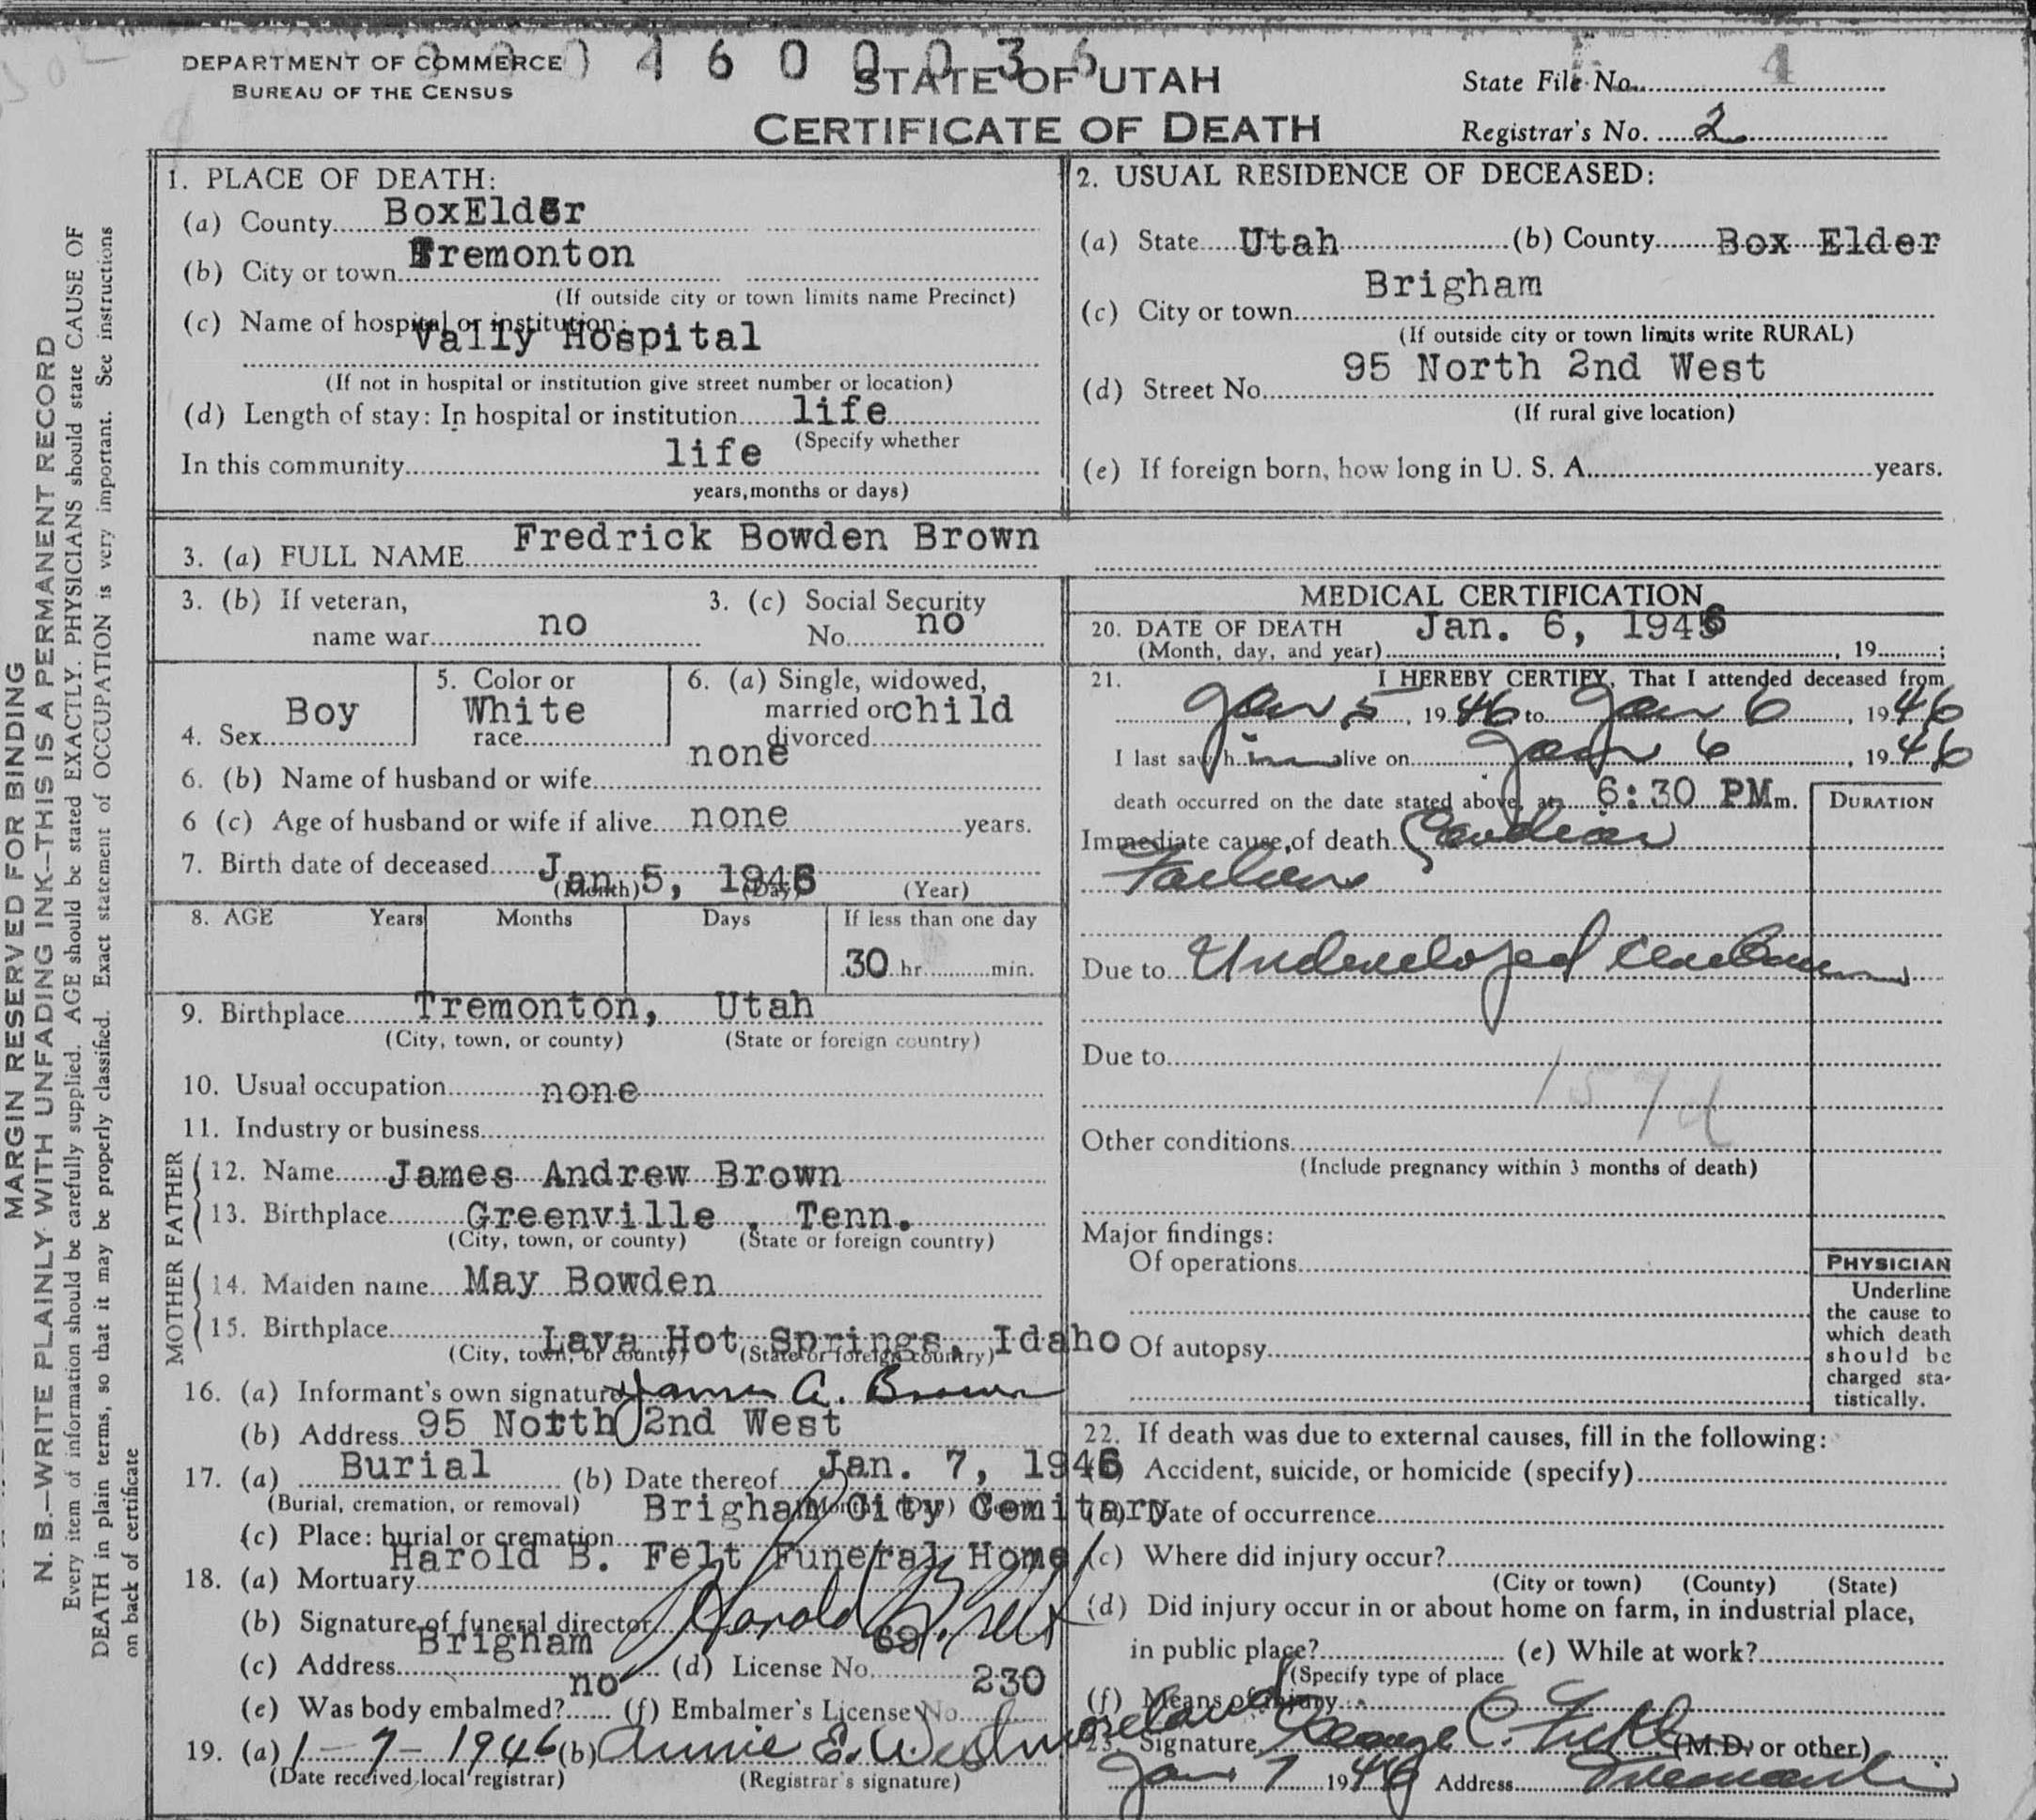 DEPARTMENT OF COMMERCE
BUREAU OF THE CENSUS
4 6 0 0 0 3 6
STATE OF UTAH
CERTIFICATE OF DEATH
State File No. 4
Registrar's No. 2
MARGIN RESERVED FOR BINDING
N. B.—WRITE PLAINLY WITH UNFADING INK—THIS IS A PERMANENT RECORD
Every item of information should be carefully supplied. AGE should be stated EXACTLY. PHYSICIANS should state CAUSE OF
DEATH in plain terms, so that it may be properly classified. Exact statement of OCCUPATION is very important. See instructions
on back of certificate
1. PLACE OF DEATH:
(a) County BoxElder
(b) City or town Tremonton
(If outside city or town limits name Precinct)
(c) Name of hospital or institution:
Vally Hospital
(If not in hospital or institution give street number or location)
(d) Length of stay: In hospital or institution life
(Specify whether
In this community life
years, months or days)
2. USUAL RESIDENCE OF DECEASED:
(a) State Utah (b) County Box Elder
(c) City or town Brigham
(If outside city or town limits write RURAL)
(d) Street No. 95 North 2nd West
(If rural give location)
(e) If foreign born, how long in U. S. A. years.
3. (a) FULL NAME Fredrick Bowden Brown
3. (b) If veteran,
name war no
3. (c) Social Security
No. no
4. Sex Boy
5. Color or
race White
6. (a) Single, widowed,
married or child
divorced
6. (b) Name of husband or wife none
6 (c) Age of husband or wife if alive none years.
7. Birth date of deceased Jan 5, 1946
(Month) (Day) (Year)
8. AGE Years Months Days If less than one day
30 hr. min.
9. Birthplace Tremonton, Utah
(City, town, or county) (State or foreign country)
10. Usual occupation none
11. Industry or business
FATHER
12. Name James Andrew Brown
13. Birthplace Greenville , Tenn.
(City, town, or county) (State or foreign country)
MOTHER
14. Maiden name May Bowden
15. Birthplace Lava Hot Springs, Idaho
(City, town, or county) (State or foreign country)
16. (a) Informant's own signature James A. Brown
(b) Address 95 North 2nd West
17. (a) Burial (b) Date thereof Jan. 7, 1946
(Burial, cremation, or removal) (Month) (Day) (Year)
(c) Place: burial or cremation Brigham City Cemitary
18. (a) Mortuary Harold B. Felt Funeral Home
(b) Signature of funeral director Harold B. Felt
(c) Address Brigham (d) License No. 69
(e) Was body embalmed? no (f) Embalmer's License No. 230
19. (a) 1-7-1946 (b) Annie E. Westmoreland
(Date received local registrar) (Registrar's signature)
MEDICAL CERTIFICATION
20. DATE OF DEATH Jan. 6, 1946
(Month, day, and year) , 19 ;
21. I HEREBY CERTIFY, That I attended deceased from
Jan 5, 1946 to Jan 6, 1946
I last saw him alive on Jan 6, 1946
death occurred on the date stated above, at 6:30 PM m.
DURATION
Immediate cause of death Cardiac
Failure
Due to Undeveloped
Due to
157d
Other conditions
(Include pregnancy within 3 months of death)
Major findings:
Of operations
Of autopsy
PHYSICIAN
Underline
the cause to
which death
should be
charged sta-
tistically.
22. If death was due to external causes, fill in the following:
(a) Accident, suicide, or homicide (specify)
(b) Date of occurrence
(c) Where did injury occur?
(City or town) (County) (State)
(d) Did injury occur in or about home on farm, in industrial place,
in public place? (e) While at work?
(Specify type of place
(f) Means of injury
23. Signature George C. (M.D. or other)
Jan 7 1946 Address Tremonton